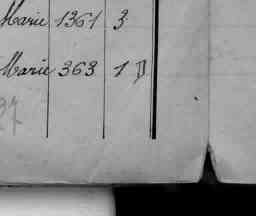 Marie 1361 3
Marie 363 1 D
37